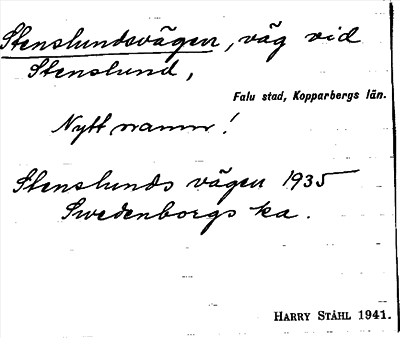 Stenslundsvägen, väg vid
Stenslund,
Falu stad, Kopparbergs län.
Nytt namn!
Stenslunds vägen 1935
Swedenborgs ka.
HARRY STÅHL 1941.